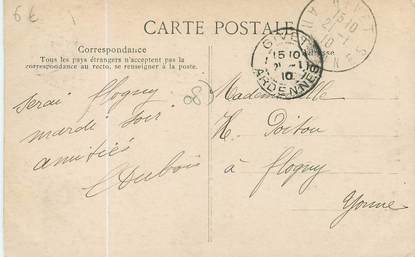 6€
CARTE POSTALE
Correspondance
Tous les pays étrangers n'acceptent pas la
correspondance au recto, se renseigner à la poste.
Serai flogny
mardi soir
amitiés
Dubois
GIVET
15 10
21 - 1
10
ARDENNES
GIVET
15 10
21 - 1
10
Mademoiselle
H. Poitou
à flogny
Yonne